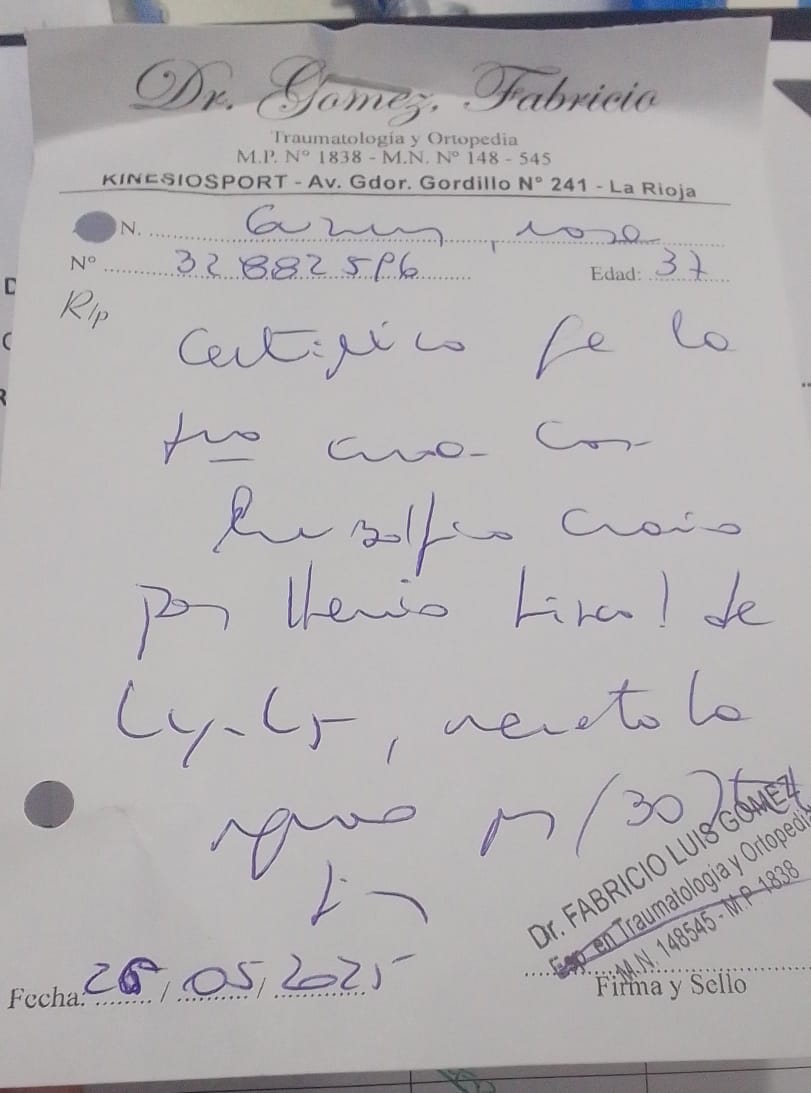 Dr. Gomez, Fabricio
Traumatología y Ortopedia
M.P. N° 1838 - M.N. N° 148 - 545
KINESIOSPORT - Av. Gdor. Gordillo N° 241 - La Rioja
N.
N° 32882596
Edad: 37
R/p
Certifico que la
cursa con
lumbalgia
por Hernia discal de
L4-L5, necesita
reposo por (30) treinta
días
Dr. FABRICIO LUIS GOMEZ
Esp en Traumatología y Ortopedia
M.N. 148545 - M.P. 1838
Fecha: 26/05/2025
Firma y Sello